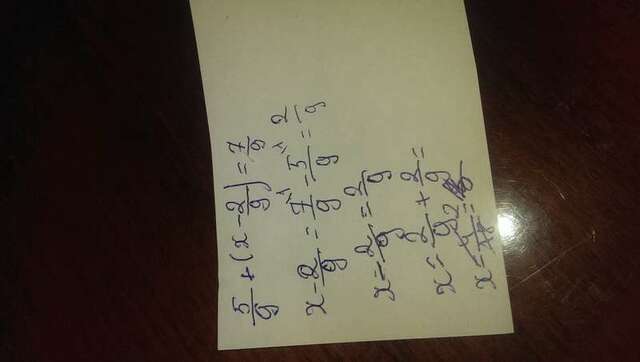 5/9 + (x - 2/9) = 7/9
x - 2/9 = 7/9 - 5/9 = 2/9
x - 2/9 = 2/9
x = 2/9 + 2/9 =
x =